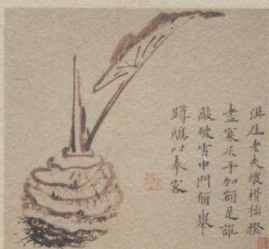 老夫煨榾柮撥
盡寒灰手加額是誰
敲破雪中門願舉
蹲鴟以奉客